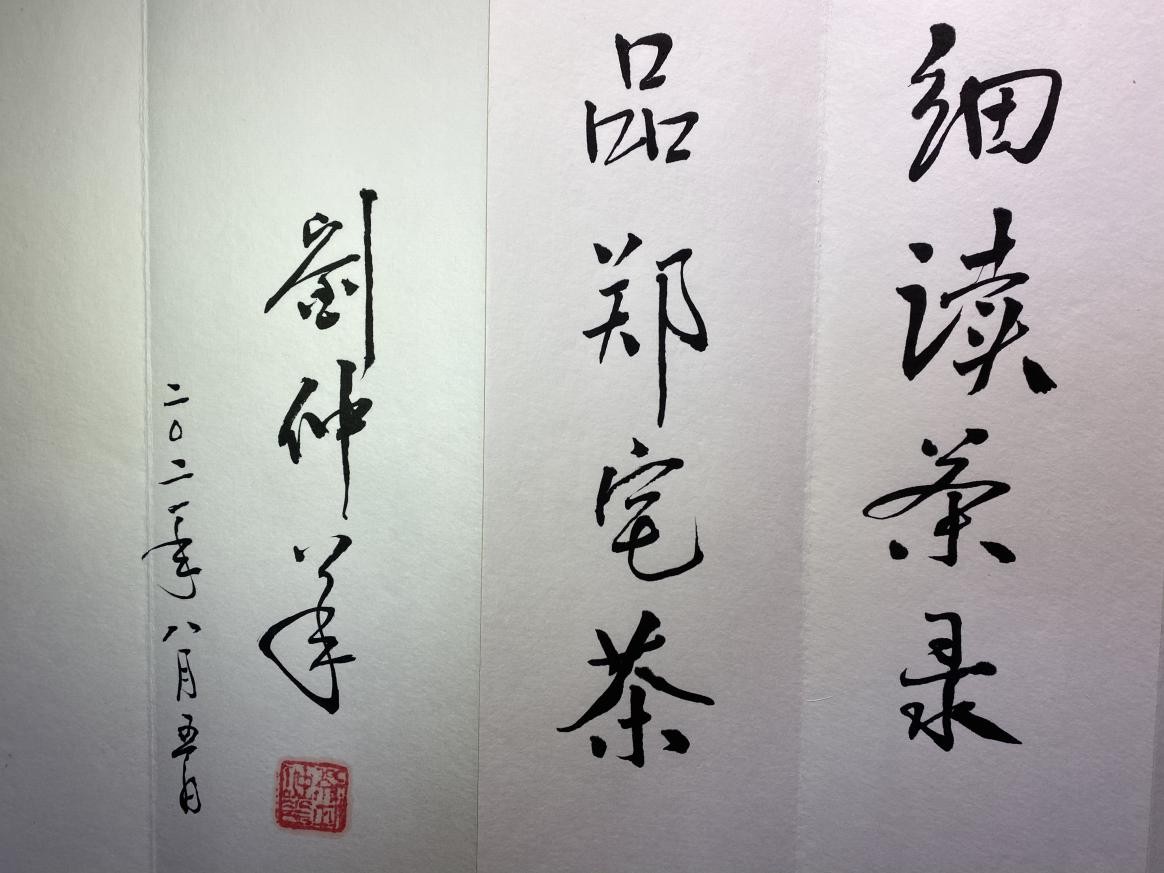 细读茶录
品郑宅茶
劉仲華
二〇二一年八月五日